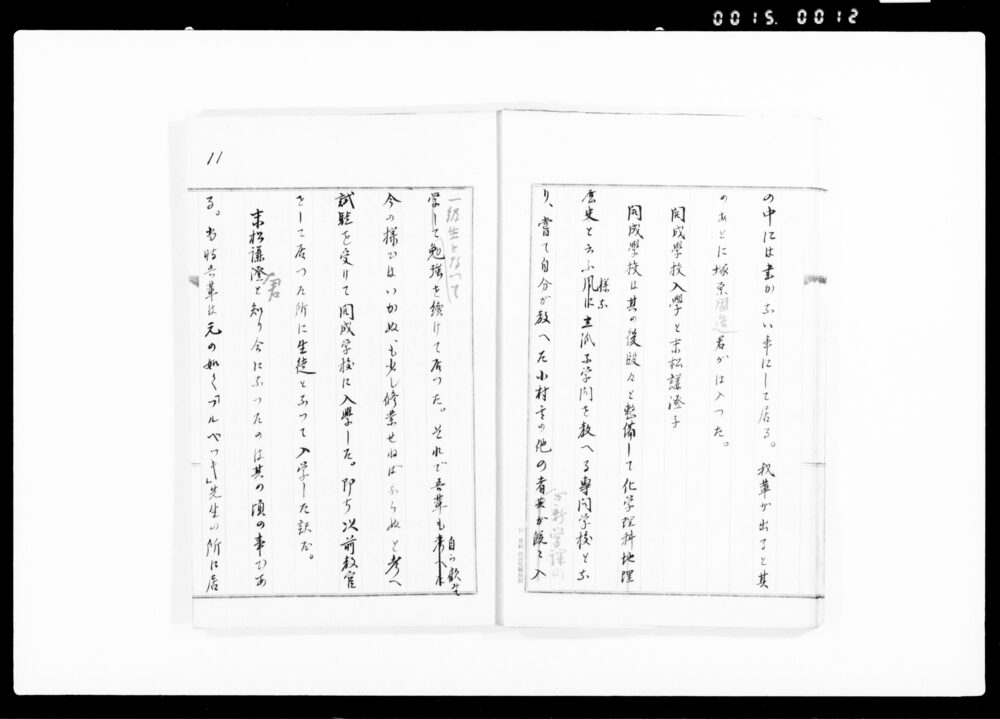 0015. 0012
の中には書かない事にして居る。我輩が出ると其
のあとに塚原周造君がはいつた。
開成學校入學と末松謙澄子
開成學校は其の後段々と整備して化学理科地理
歴史と云ふ風に立派な学問を教へる専門学校とな
様な
り、嘗て自分が教へた小村其の他の者共が続々入
が新学課の
11
一級生となつて
学して勉強を続けて居つた。それで吾輩も考へた
自ら顧みて
今の様ではいかぬ、も少し修業せねばならぬと考へ
試験を受けて開成学校に入學した。即ち以前教官
をして居つた所に生徒となつて入学した訳だ。
末松謙澄と知り合になつたのは其の頃の事であ
君
る。当時吾輩は元の如くフルベッキ先生の所に居